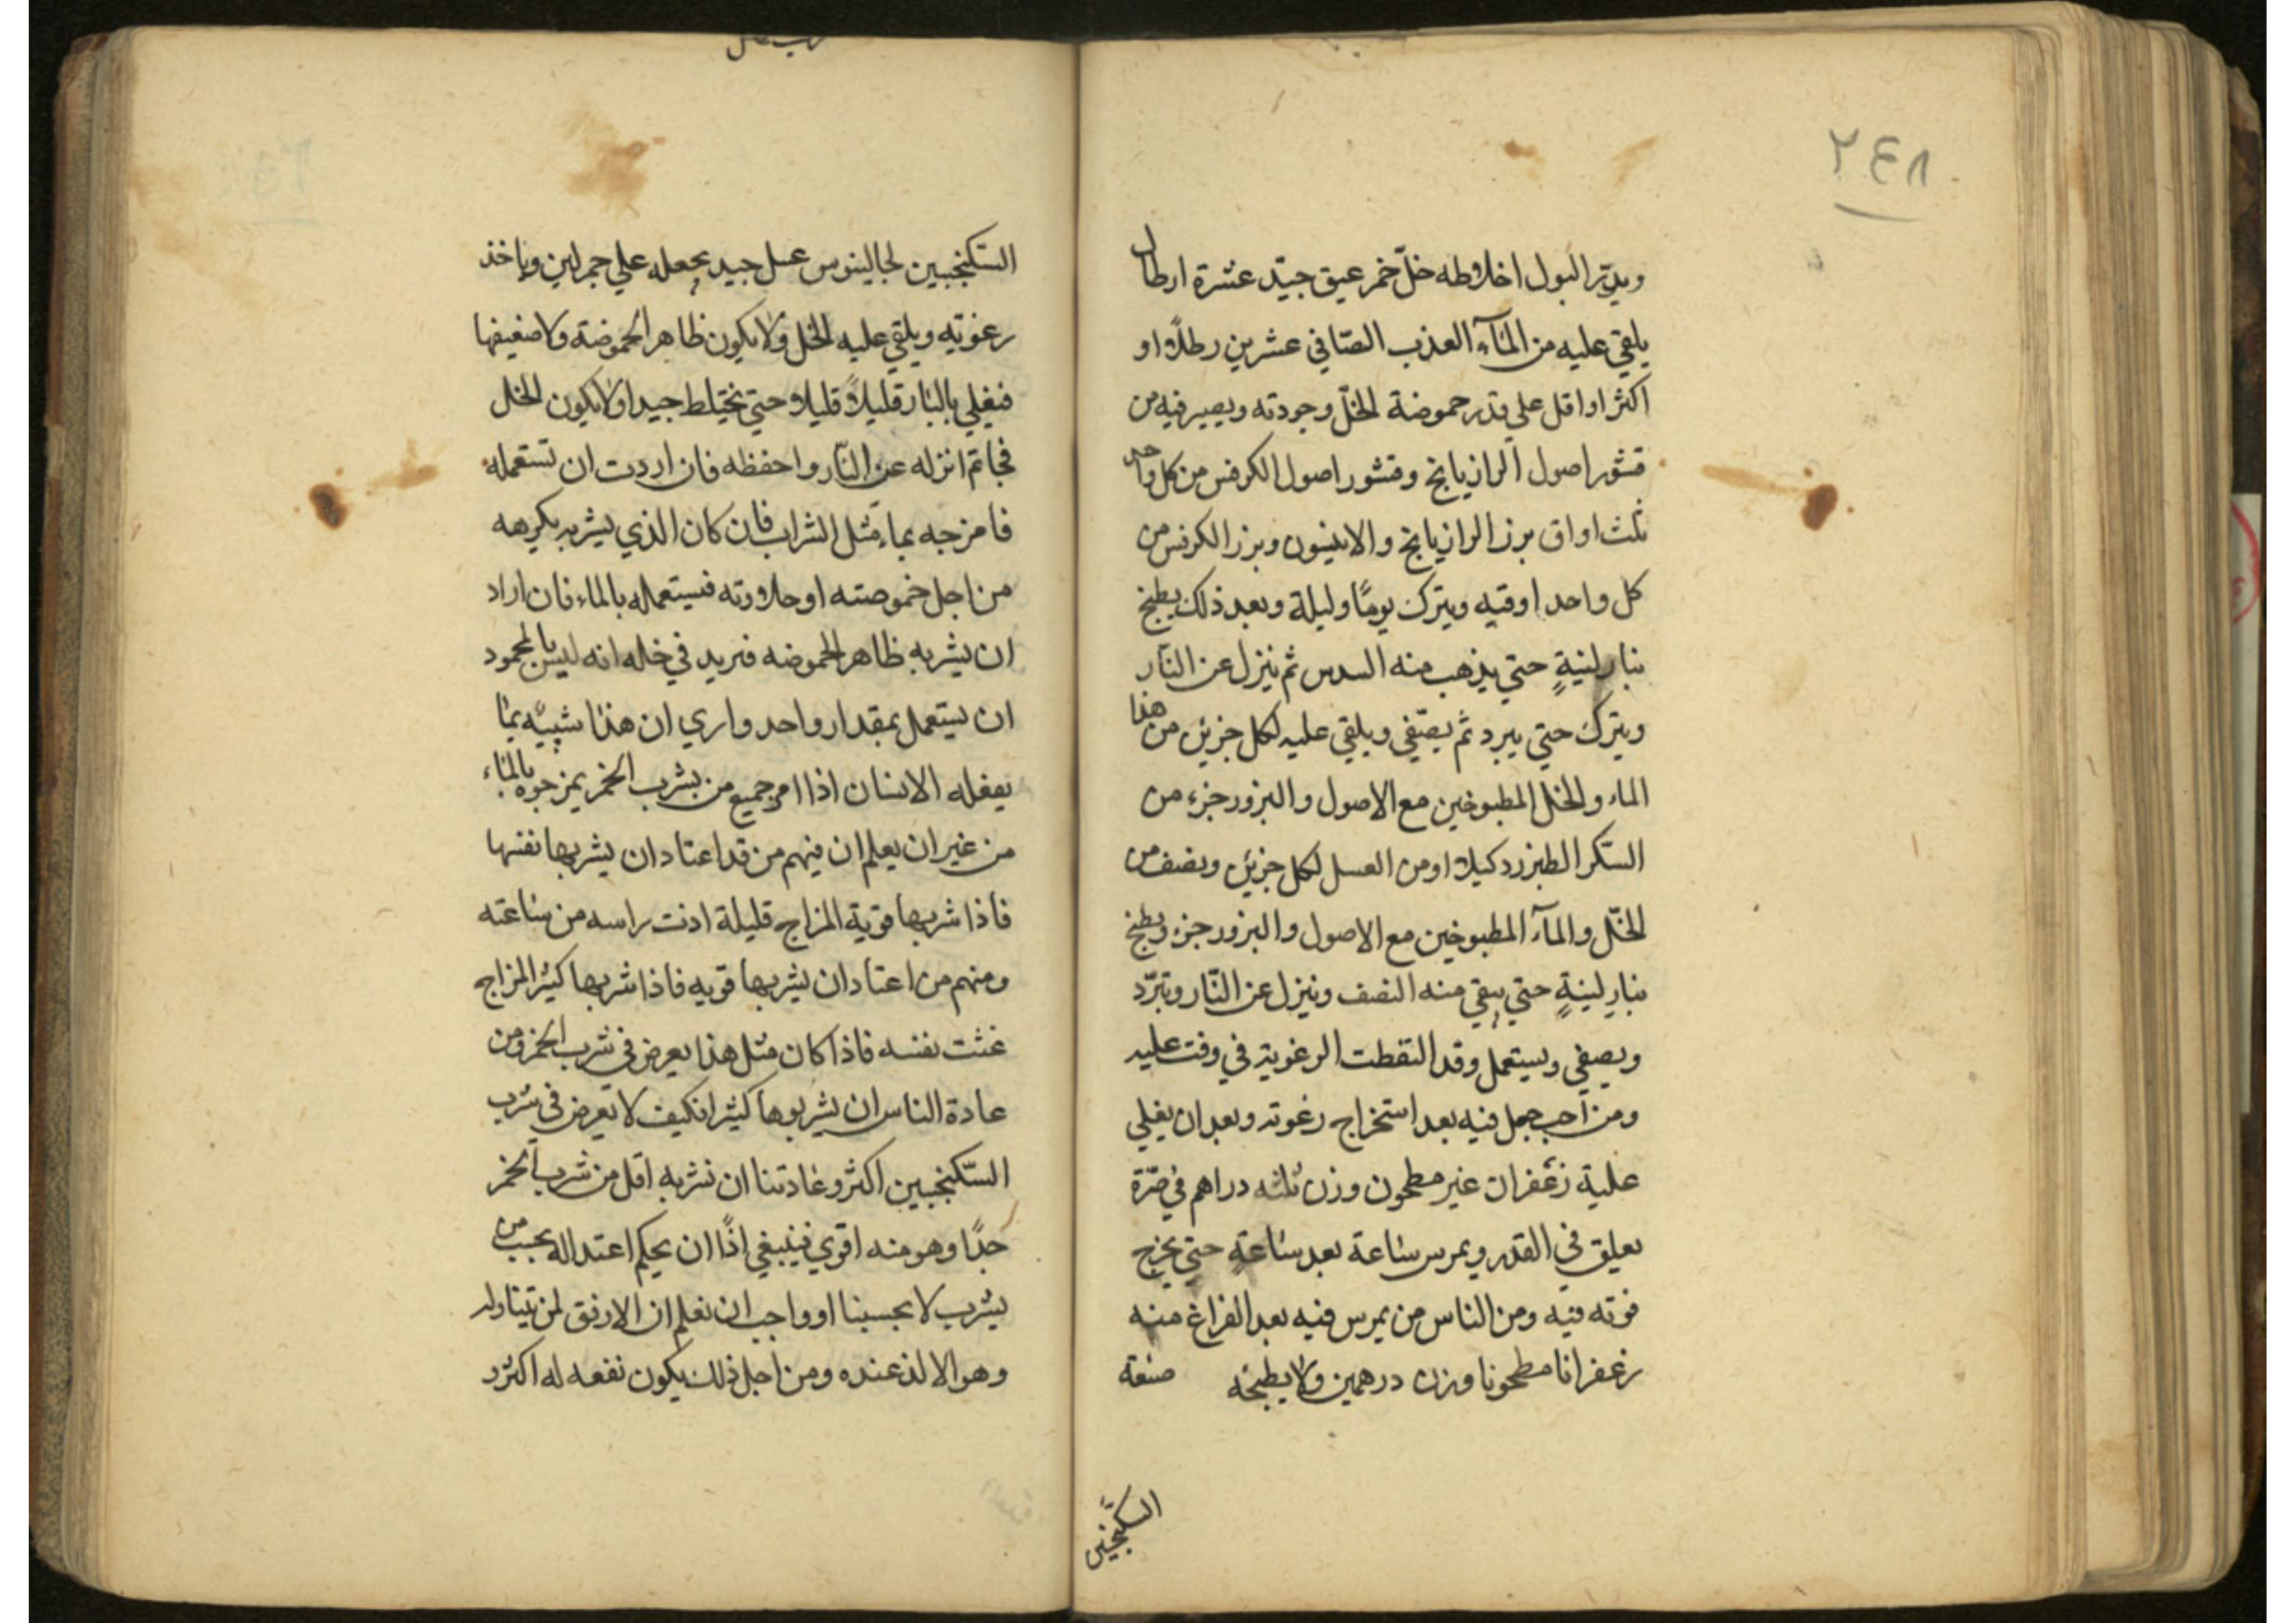 ٢٤٨
ويدرّ البول اخلاطه خلّ خمر عتيق جيّد عشرة ارطال
يلقي عليه من المآء العذب الصّافي عشرين رطلاً او
اكثر او اقل علي قدر حموضة الخلّ وجودته ويصير فيه من
قشور اصول الرازيانج وقشور اصول الكرفس من كل واحد
ثلث اواق برز الرازيانج والانيسون وبزر الكرفس من
كل واحد اوقيه ويترك يومًا وليلة وبعد ذلك يطبخ
بنار لينةٍ حتي يذهب منه السدس ثم ينزل عن النّار
ويترك حتي يبرد ثم يصّفي ويلقي عليه لكل جزئين من هذا
الماء والخل المطبوخين مع الاصول والبزور جزء من
السّكر الطبرزد كيلا او من العسل لكل جزئين ونصف من
الخّل والمآء المطبوخين مع الاصول والبزور جزء ويطبخ
بنارٍ لينةٍ حتي يبقي منه النصف وينزل عن النّار ويبرّد
ويصفي ويستعمل وقد التقطت الرغوية في وقت عليه
ومن احب جعل فيه بعد استخراج رغوته وبعد ان يغلي
علية زعفران غير مطحون وزن ثلثه دراهم في صّرة
يعلق في القدر ويمرس ساعة بعد ساعةٍ حتي يخرج
قوته فيه ومن الناس من يمرس فيه بعد الفراغ منه
زعفرانا مطحونا وزن درهمين ولا يطبخه صنعة
السكنجبين
السّكنجبين لجالينوس عسل جيد يجعله علي جمر لين وياخذ
رغوتيه ويلقي عليه الخل ولا يكون ظاهر الحموضة ولا ضعيفها
فيغلي بالنار قليلاً قليلا حتي يختلط جيدا ولا يكون الخل
فجا ثم انزله عن النّار واحفظه فان اردت ان تستعمله
فامزجه بماء مثل الشراب فان كان الذي يشربه يكرهه
من اجل حموضته او حلاوته فيستعمله بالماء فان اراد
ان يشربه ظاهر الحموضه فزيد في خله انه ليس بالمحمود
ان يستعمل بمقدار واحد واري ان هذا شبيه بما
يفعله الانسان اذا امر جميع من يشرب الخمر يمزجوه بالماء
من غير ان يعلم ان فيهم من قد اعتاد ان يشربها نفسها
فاذا شربها قوية المزاج قليلة اذت راسه من ساعته
ومنهم من اعتاد ان يشربها قويه فاذا شربها كثير المزاج
غثت نفسه فاذا كان مثل هذا يعرض في شرب الخمر ومن
عادة الناس ان يشربوها كثيرا فكيف لا يعرض في شرب
السّكنجبين اكثر وعادتنا ان نشربه اقل من شرب الخمر
جدًا وهو منه اقوي فينبغي اذًا ان يحكم اعتداله بحسب من
يشرب لا بحسبنا او واجب ان نعلم ان الاوفق لمن يتناوله
وهو الالذ عنده ومن اجل ذلك يكون نفعه له اكثر و